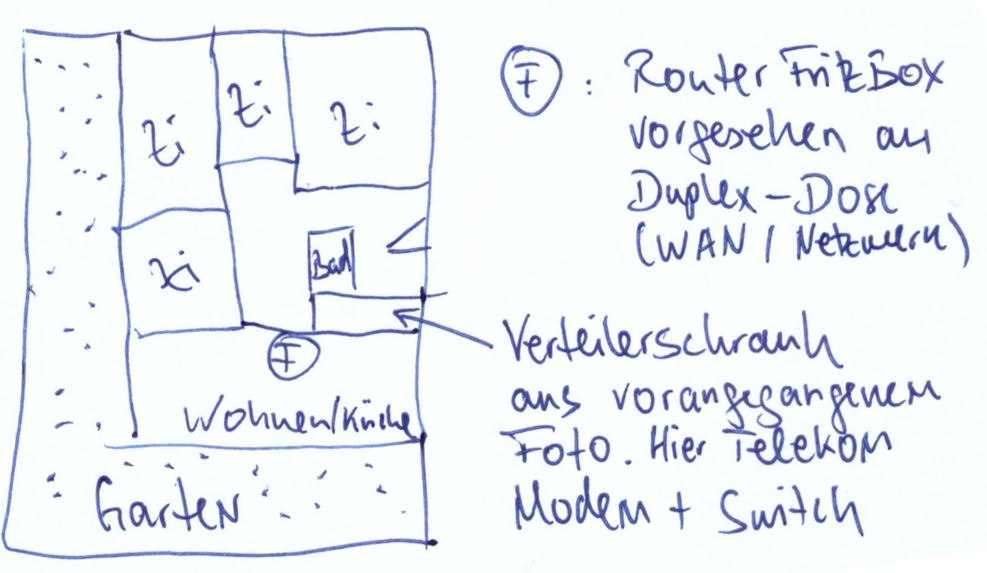 Zi
Zi
Zi
Zi
Bad
F
Wohnen/Küche
Garten
F : Router FritzBox
vorgesehen an
Duplex-Dose
(WAN / Netzwerk)
Verteilerschrank
aus vorangegangenem
Foto. Hier Telekom
Modem + Switch